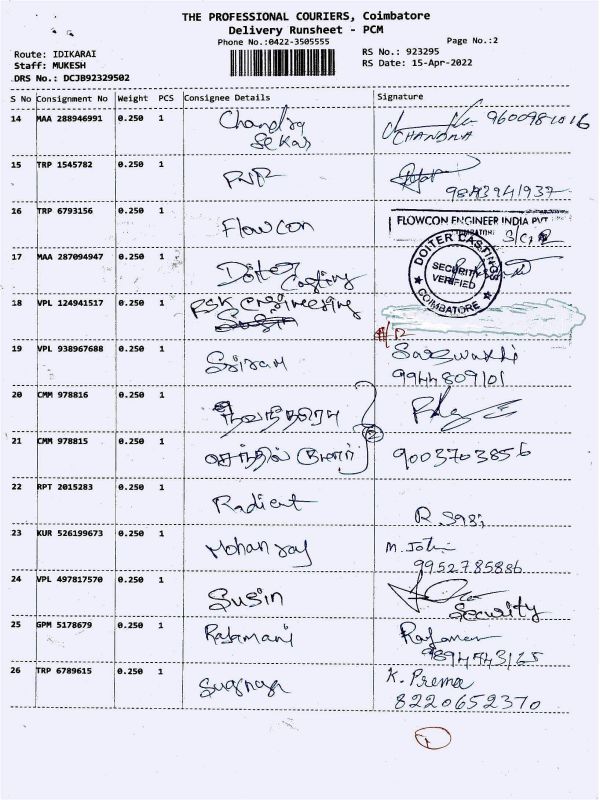 THE PROFESSIONAL COURIERS, Coimbatore
Delivery Runsheet - PCM
Phone No.:0422-3505555
Page No.:2
Route: IDIKARAI
RS No.: 923295
Staff: MUKESH
RS Date: 15-Apr-2022
DRS No.: DCJB92329502
S No Consignment No Weight PCS Consignee Details Signature
14 MAA 288946991 0.250 1 Chandra Sekar 9600981016
CHANDRA
15 TRP 1545782 0.250 1
9843941937
16 TRP 6793156 0.250 1 Flowcon FLOWCON ENGINEER INDIA PVT
17 MAA 287094947 0.250 1 Doiter Casting
DOITER CASTINGS
SECURITY
VERIFIED
COIMBATORE
18 VPL 124941517 0.250 1 RSK Engineering
19 VPL 938967688 0.250 1 Sriram Saraswathi
9944809101
20 CMM 978816 0.250 1
21 CMM 978815 0.250 1 செந்தில் குமார் 9003703856
22 RPT 2015283 0.250 1 Radient
23 KUR 526199673 0.250 1 Mohan raj M. Joti
9952785886
24 VPL 497817570 0.250 1 Susin
Security
25 GPM 5178679 0.250 1 Rajamani Rajaman
9894543125
26 TRP 6789615 0.250 1 K. Prema
8220652370